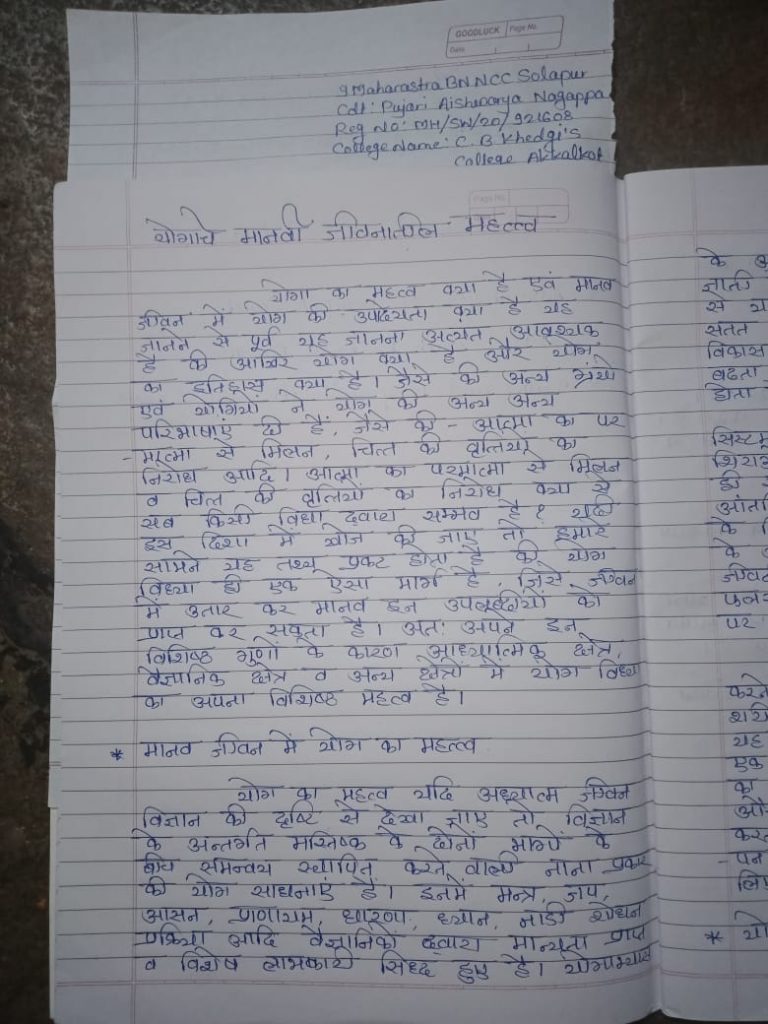 GOODLUCK Page No.
Date
9 Maharastra BN NCC Solapur
Cdt: Pujari Aishwarya Nagappa
Reg No: MH/SW/20/921608
College Name: C. B Khedgi's
College Akkalkot
Page No.
योगाचे मानवी जीवनातील महत्त्व
योगा का महत्व क्या है एवं मानव
जीवन में योग की उपदेयता क्या है यह
जानने से पूर्व यह जानना अत्यंत आवश्यक
है की आखिर योग क्या है और योग
का इतिहास क्या है। जैसे की अन्य ग्रंथो
एवं योगियों ने योग की अन्य अन्य
परिभाषाएं दी हैं, जैसे की - आत्मा का पर
- मात्मा से मिलन, चित्त की वृत्तियों का
निरोध आदि। आत्मा का परमात्मा से मिलन
व चित्त की वृत्तियों का निरोध क्या ये
सब किसी विधा द्वारा सम्भव है? यदी
इस दिशा में खोज की जाए तो हमारे
सामने यह तथ्य प्रकट होता है की योग
विध्या ही एक ऐसा मार्ग है, जिसे जीवन
में उतार कर मानव इन उपलब्धीयों को
प्राप्त कर सकता है। अतः अपने इन
विशिष्ठ गुणों के कारण आध्यात्मिक क्षेत्र,
वैज्ञानिक क्षेत्र व अन्य क्षेत्रों में योग विध्या
का अपना विशिष्ठ महत्व है।
* मानव जीवन में योग का महत्व
योग का महत्व यदि अध्यात्म जीवन
विज्ञान की दृष्टि से देखा जाए तो विज्ञान
के अन्तर्गत मस्तिष्क के दोनों भागों के
बीच समन्वय स्थापित करने वाली नाना प्रकार
की योग साधनाएं है। इनमें मन्त्र, जप,
आसन, प्राणायाम, धारणा, ध्यान, नाडी शोधन
प्रक्रिया आदि वैज्ञानिकों द्वारा मान्यता प्राप्त
व विशेष लाभकारी सिध्द हुए है। योगाभ्यास
के
जाती
से
सतत
विकास
बढता
होता
सिस्टम
ही
आंतरि
के
के
जीवन
पर
करते
शरी
यह
एक
का
औ
करत
- पन
लिए
* यो